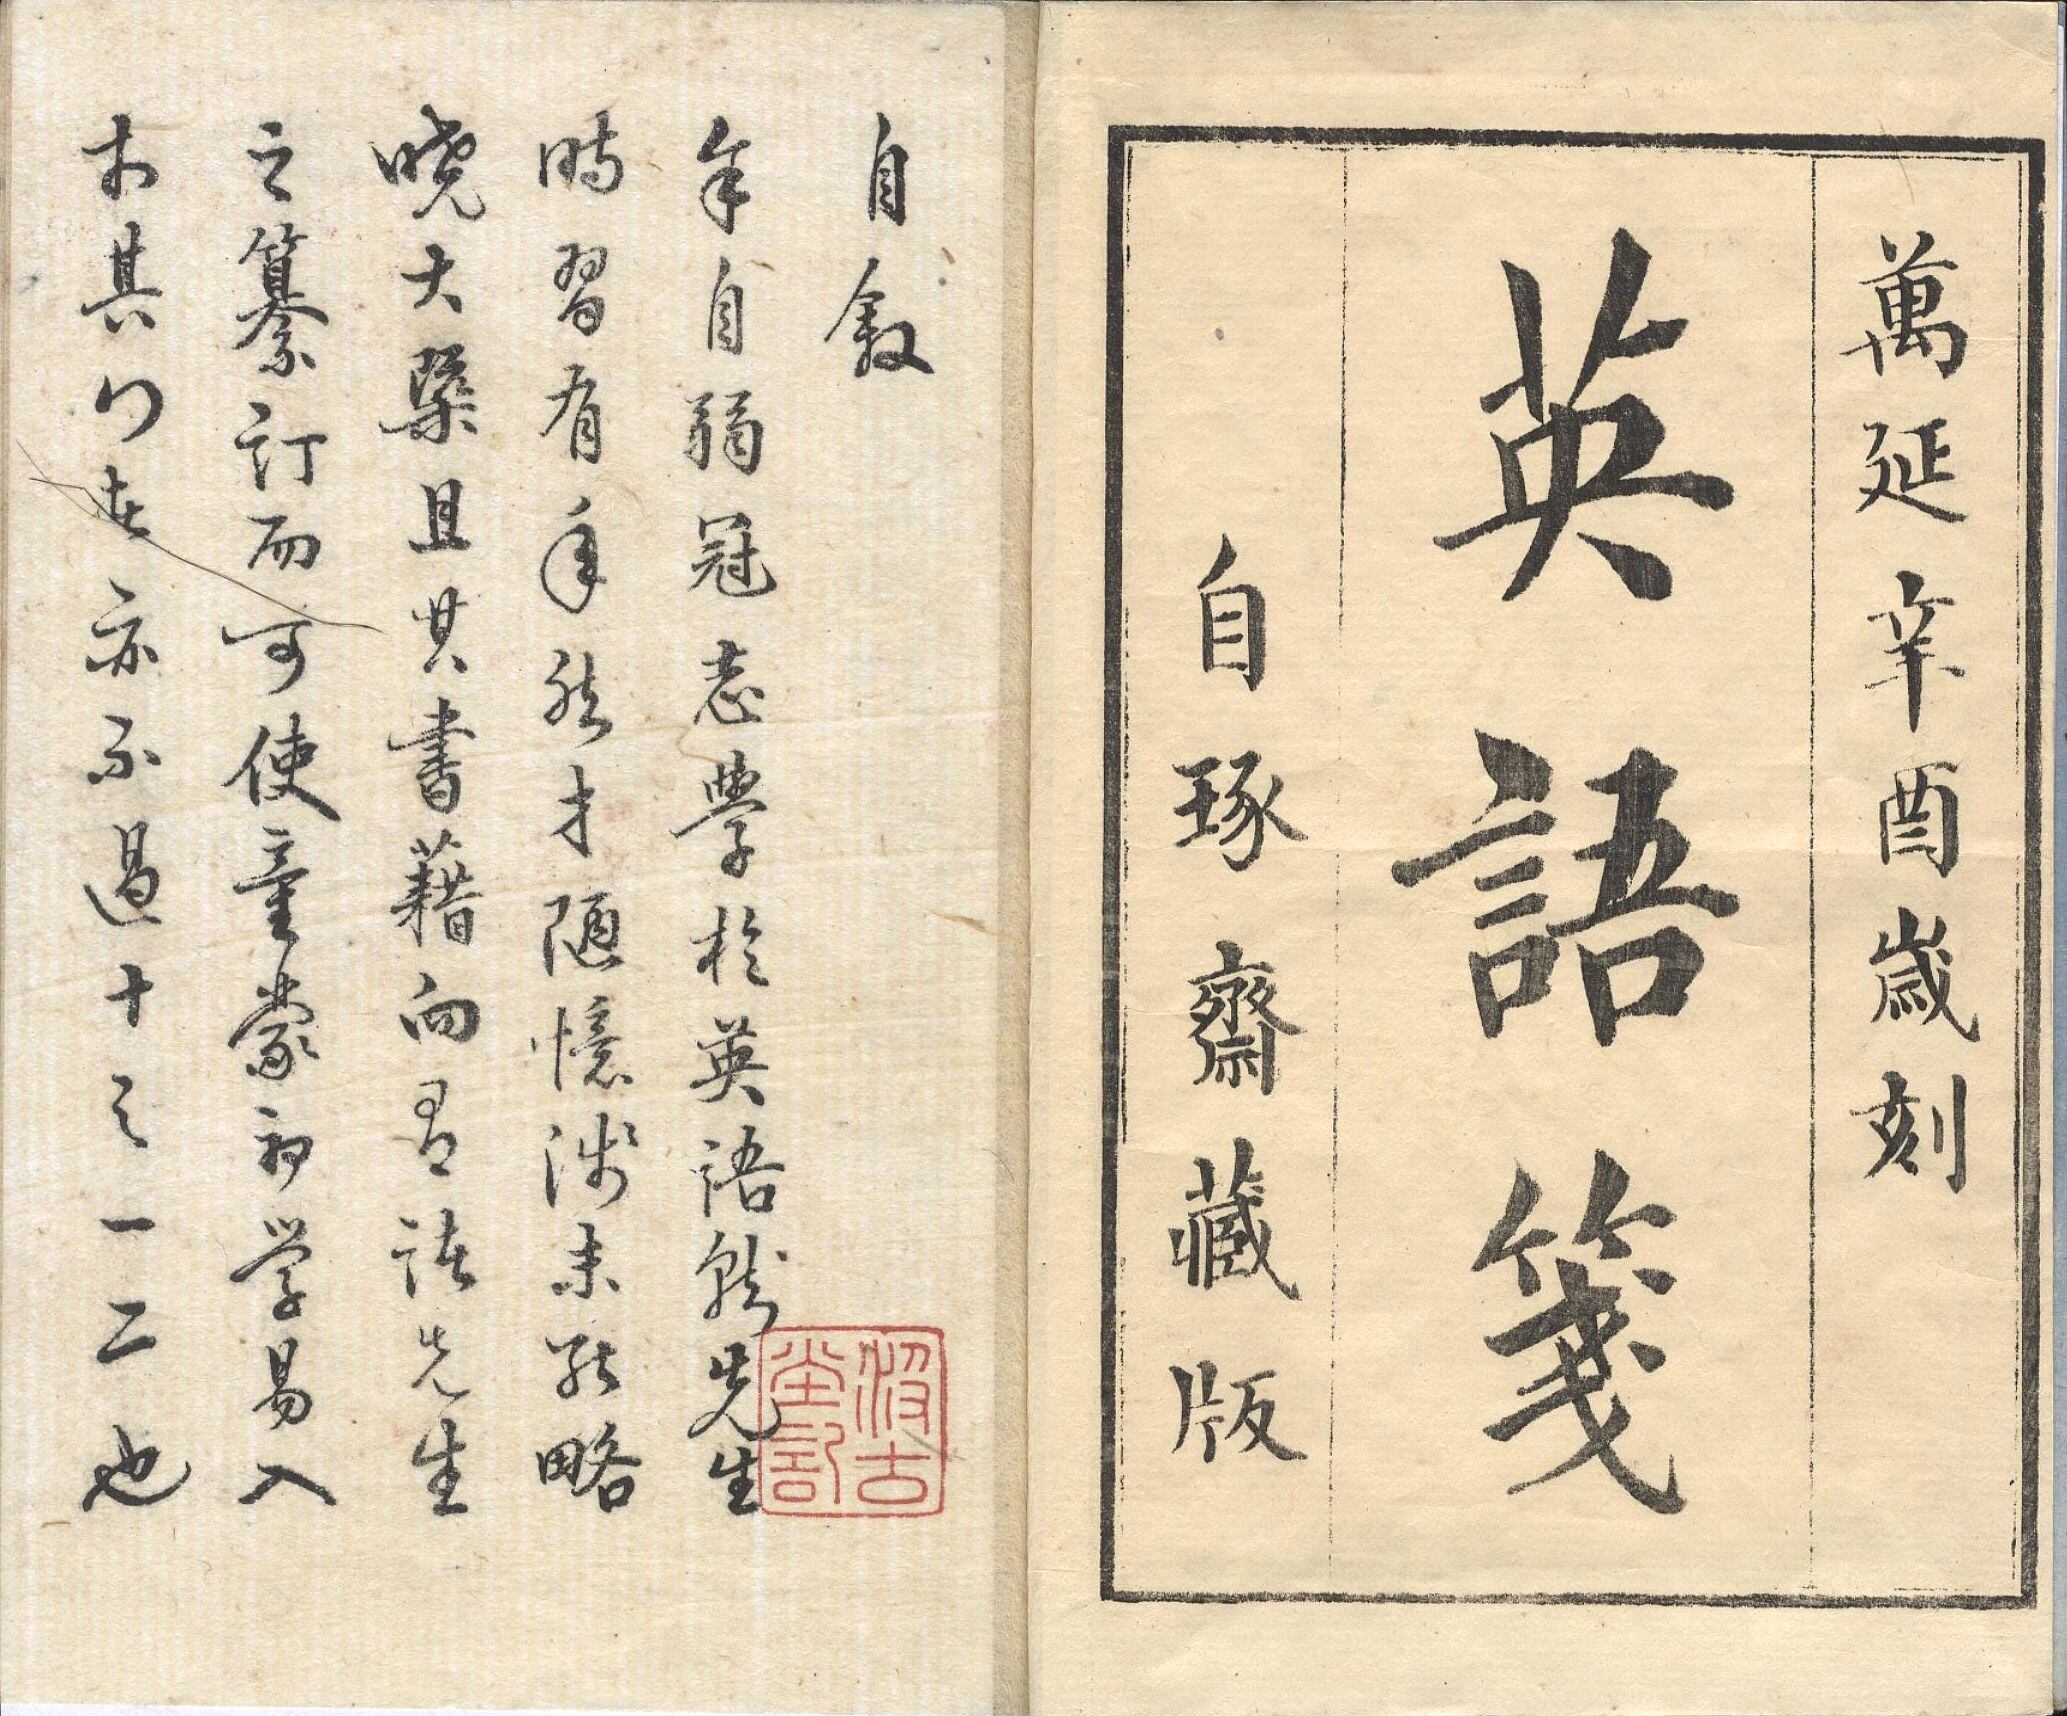 萬延辛酉歳刻
英語箋
自琢齋藏版
自敘
余自弱冠志學於英語就先生
時習有年然才陋憶淺未能略
曉大槩且其書藉向有諸先生
之纂訂而可使童蒙初学易入
其門者亦不過十之一二也